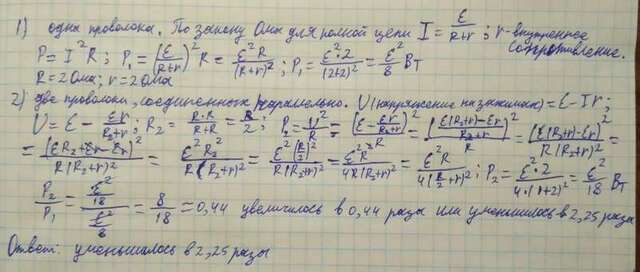 1) одна проволока. По закону Ома для полной цепи I = ε/(R+r); r - внутреннее сопротивление.
P = I²R; P₁ = (ε/(R+r))² R = ε²R/(R+r)²; P₁ = ε²·2/(2+2)² = ε²/8 Вт
R = 2 Ома; r = 2 Ома
2) две проволоки, соединенных параллельно. U (напряжение на зажимах) = ε - Ir;
U = ε - εr/(R₂+r); R₂ = R·R/(R+R) = R/2; P₂ = U²/R = [ε - εr/(R₂+r)]²/R = [(ε(R₂+r) - εr)/(R₂+r)]²/R = [ε(R₂+r) - εr]²/R(R₂+r)² =
= [εR₂ + εr - εr]²/R(R₂+r)² = ε²R₂²/R(R₂+r)² = ε²(R/2)²/R(R₂+r)² = ε²R²/4R(R₂+r)² = ε²R/4(R/2+r)²; P₂ = ε²·2/4·(1+2)² = ε²/18 Вт
P₂/P₁ = (ε²/18)/(ε²/8) = 8/18 = 0,44 увеличилось в 0,44 разы или уменьшилось в 2,25 разы
Ответ: уменьшилось в 2,25 разы